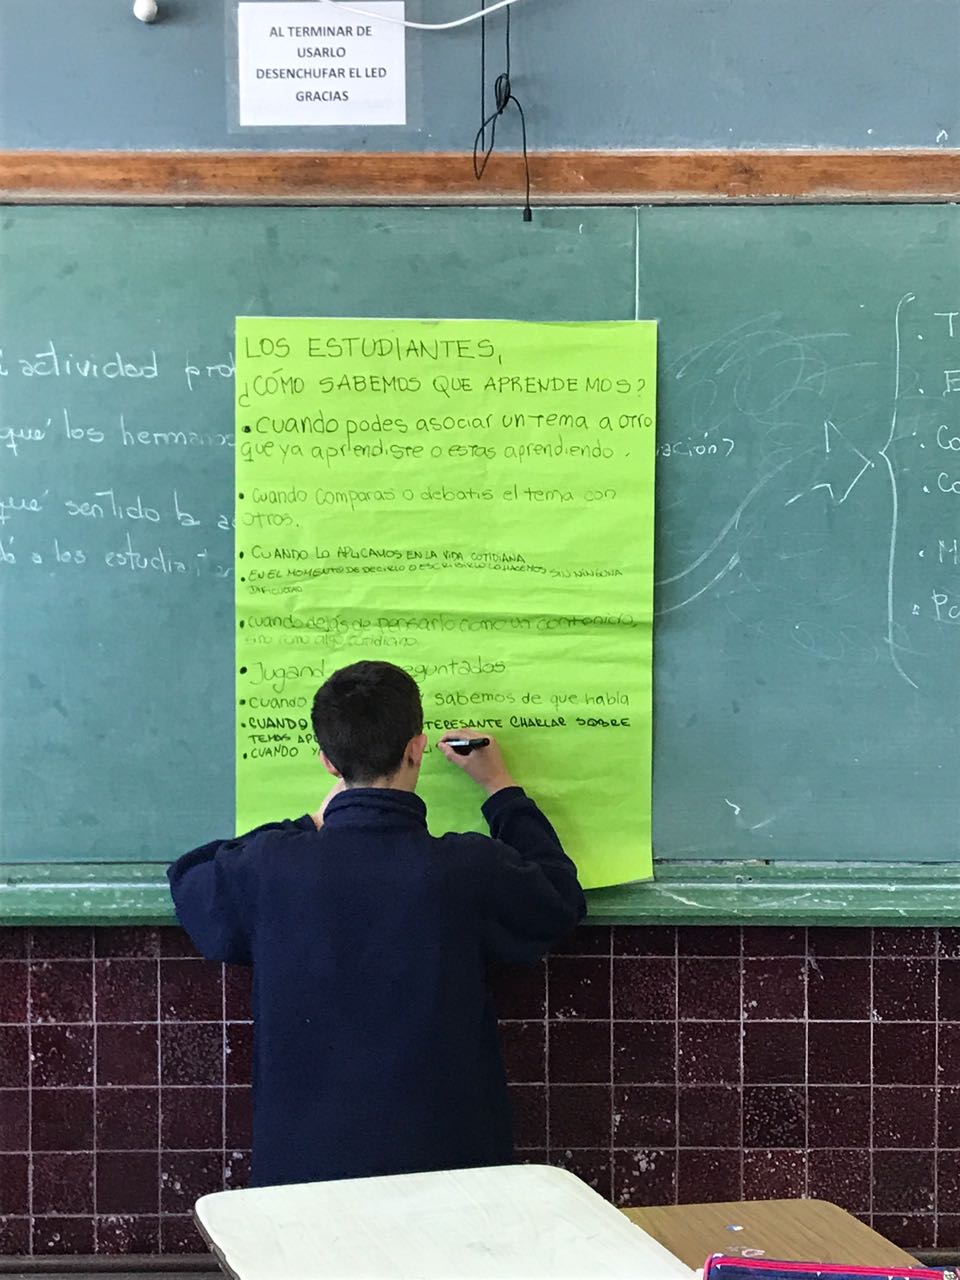 AL TERMINAR DE
USARLO
DESENCHUFAR EL LED
GRACIAS
LOS ESTUDIANTES,
¿CÓMO SABEMOS QUE APRENDEMOS?
• Cuando podes asociar un tema a otro
que ya aprendiste o estas aprendiendo.
• Cuando comparas o debatis el tema con
otros.
• CUANDO LO APLICAMOS EN LA VIDA COTIDIANA
• EN EL MOMENTO DE DECIRLO O ESCRIBIRLO LO HACEMOS SIN NINGUNA
DIFICULTAD
• cuando dejás de pensarlo como un contenido,
sino como algo cotidiano.
• Jugand eguntados
• cuando sabemos de que habla
• CUANDO TERESANTE CHARLAR SOBRE
TEMAS AP
• CUANDO
actividad
que los
que sentido la
a los